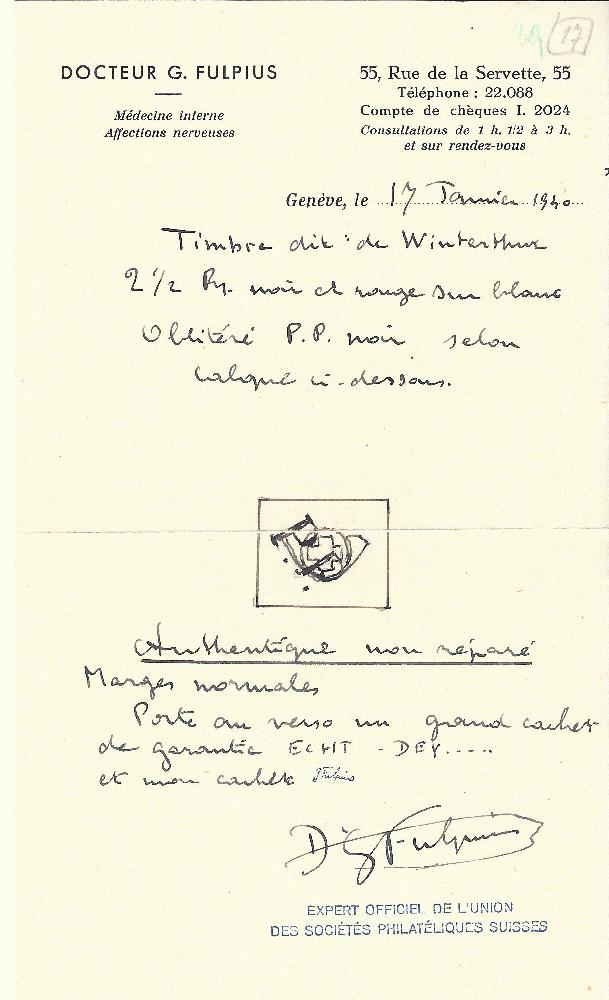 39 17
DOCTEUR G. FULPIUS
Médecine interne
Affections nerveuses
55, Rue de la Servette, 55
Téléphone : 22.088
Compte de chèques I. 2024
Consultations de 1 h. 1/2 à 3 h.
et sur rendez-vous
Genève, le 17 Janvier 1940
Timbre dit "de Winterthur
2 1/2 Rp. noir et rouge sur blanc
Oblitéré P.P. noir selon
calque ci-dessous.
P.P.
Authentique non réparé
Marges normales
Porte au verso un grand cachet
de garantie ECHT - DEY.....
et mon cachet Fulpius
Dr G Fulpius
EXPERT OFFICIEL DE L'UNION
DES SOCIÉTÉS PHILATÉLIQUES SUISSES